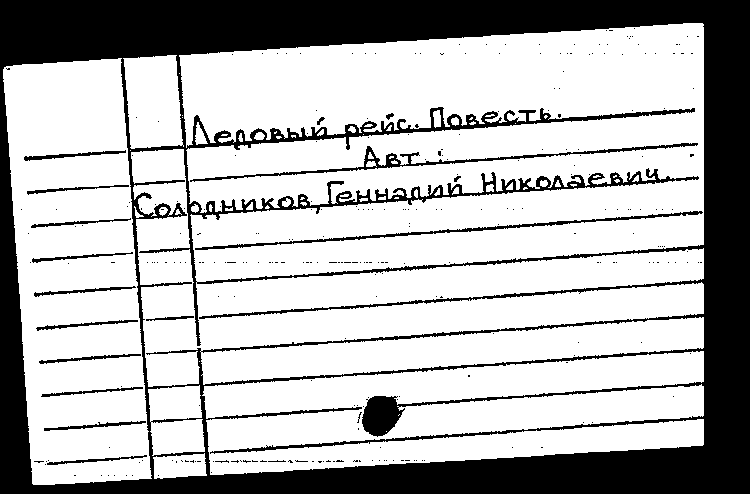 Ледовый рейс. Повесть.
Авт.:
Солодников, Геннадий Николаевич.